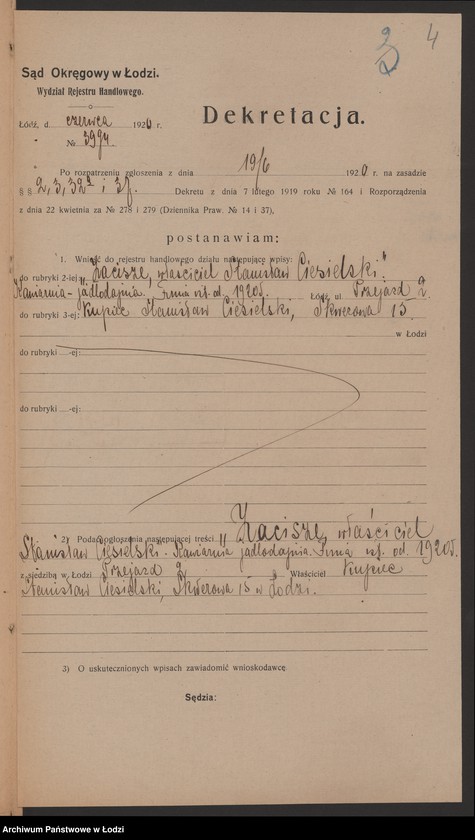 3 4
Sąd Okręgowy w Łodzi.
Wydział Rejestru Handlowego.
Dekretacja.
Łódź, d. czerwca 1920 r.
№ 3994
Po rozpatrzeniu zgłoszenia z dnia 19/6 1920 r. na zasadie
§ § 2, 3, 32a i 37. Dekretu z dnia 7 lutego 1919 roku № 164 i Rozporządzenia
z dnia 22 kwietnia za № 278 i 279 (Dziennika Praw. № 14 i 37),
postanawiam:
1. Wnieść do rejestru handlowego działu następujące wpisy:
do rubryki 2-iej: „Zacisze, właściciel Stanisław Ciesielski."
Kawiarnia-jadłodajnia. Firma istn. od. 1920r. Łódź, ul Przejazd 2.
do rubryki 3-ej: Kupiec Stanisław Ciesielski, Skwerowa 15.
w Łodzi
do rubryki ...-ej:
do rubryki ...-ej:
2) Podać ogłoszenia następującej treści „Zacisze, właściciel
Stanisław Ciesielski. Kawiarnia jadłodajnia. Firma istn. od. 1920r.
z siedzibą w Łodzi Przejazd 2. Właściciel Kupiec
Stanisław Ciesielski, Skwerowa 15 w Łodzi.
3) O uskutecznionych wpisach zawiadomić wnioskodawcę.
Sędzia:
Archiwum Państwowe w Łodzi